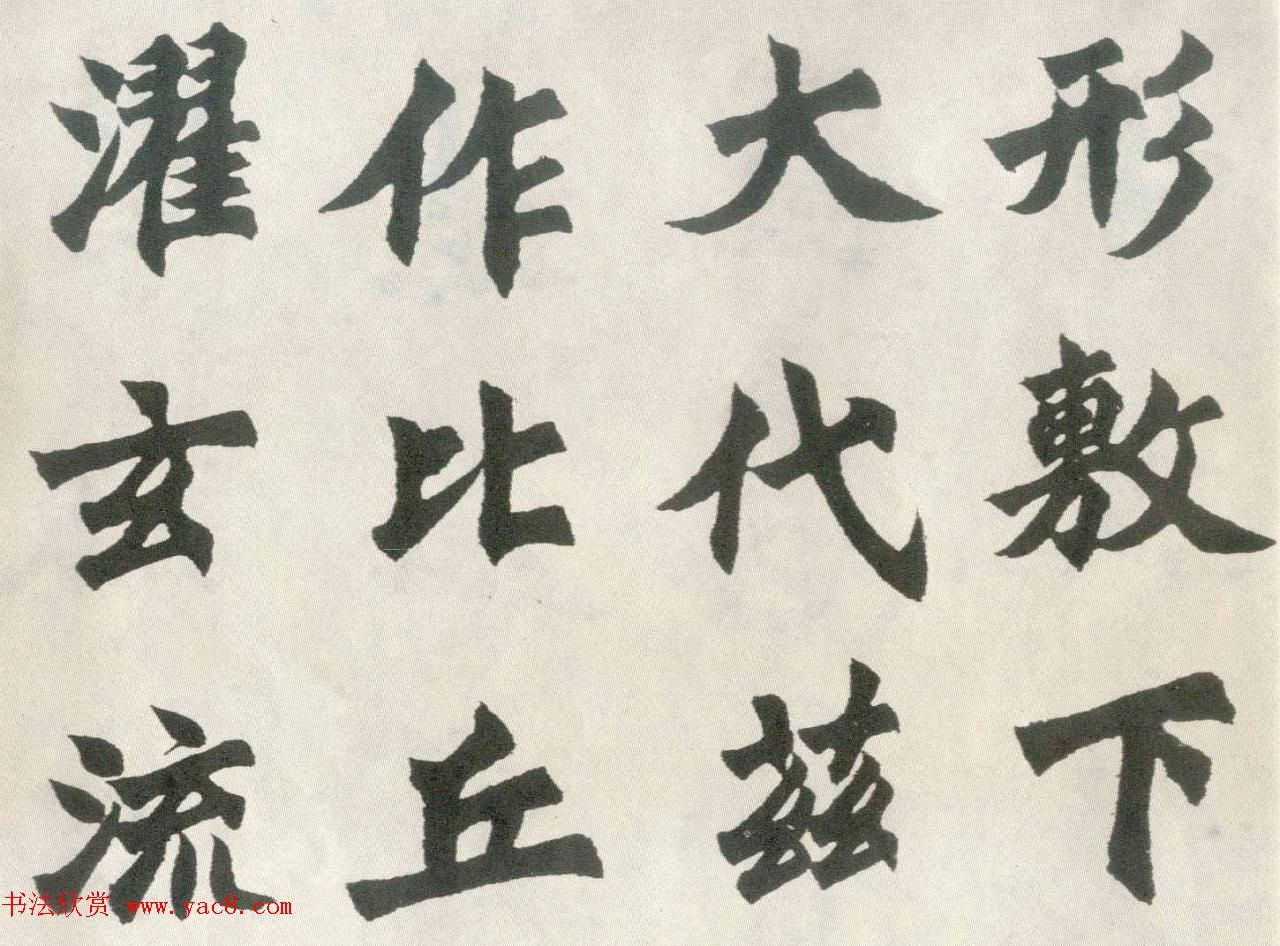 形敷下
大代兹
作比丘
濯玄流
书法欣赏 www.yac8.com